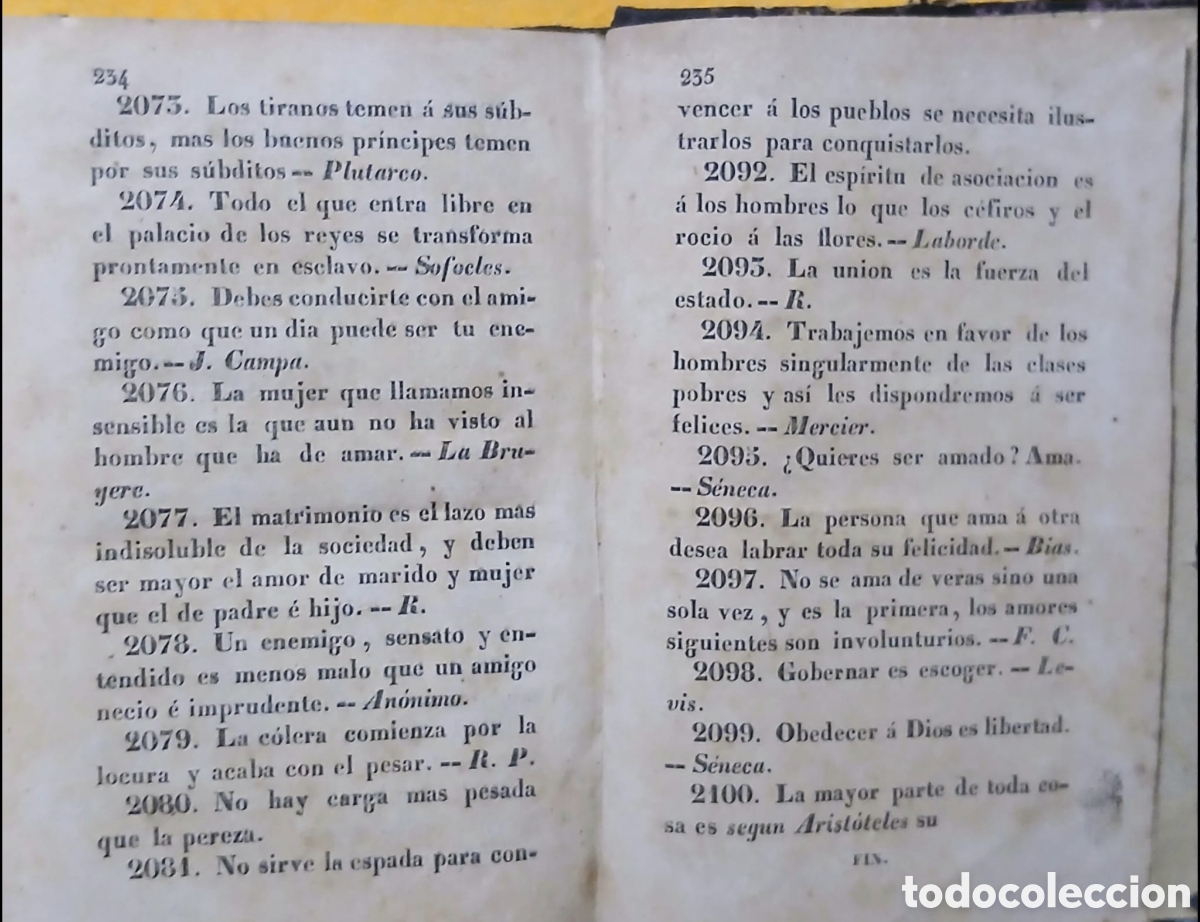 234
2073. Los tiranos temen á sus súb-
ditos, mas los buenos príncipes temen
por sus súbditos -- Plutarco.
2074. Todo el que entra libre en
el palacio de los reyes se transforma
prontamente en esclavo. -- Sofocles.
2075. Debes conducirte con el ami-
go como que un dia puede ser tu ene-
migo. -- J. Campa.
2076. La mujer que llamamos in-
sensible es la que aun no ha visto al
hombre que ha de amar. -- La Bru-
yere.
2077. El matrimonio es el lazo mas
indisoluble de la sociedad, y deben
ser mayor el amor de marido y mujer
que el de padre é hijo. -- R.
2078. Un enemigo, sensato y en-
tendido es menos malo que un amigo
necio é imprudente. -- Anónimo.
2079. La cólera comienza por la
locura y acaba con el pesar. -- R. P.
2080. No hay carga mas pesada
que la pereza.
2081. No sirve la espada para con-
235
vencer á los pueblos se necesita ilus-
trarlos para conquistarlos.
2092. El espíritu de asociacion es
á los hombres lo que los céfiros y el
rocio á las flores. -- Laborde.
2093. La union es la fuerza del
estado. -- R.
2094. Trabajemos en favor de los
hombres singularmente de las clases
pobres y así les dispondremos á ser
felices. -- Mercier.
2095. ¿Quieres ser amado? Ama.
-- Séneca.
2096. La persona que ama á otra
desea labrar toda su felicidad. -- Bias.
2097. No se ama de veras sino una
sola vez, y es la primera, los amores
siguientes son involunturios. -- F. C.
2098. Gobernar es escoger. -- Le-
vis.
2099. Obedecer á Dios es libertad.
-- Séneca.
2100. La mayor parte de toda co-
sa es segun Aristóteles su
FIN.
todocoleccion